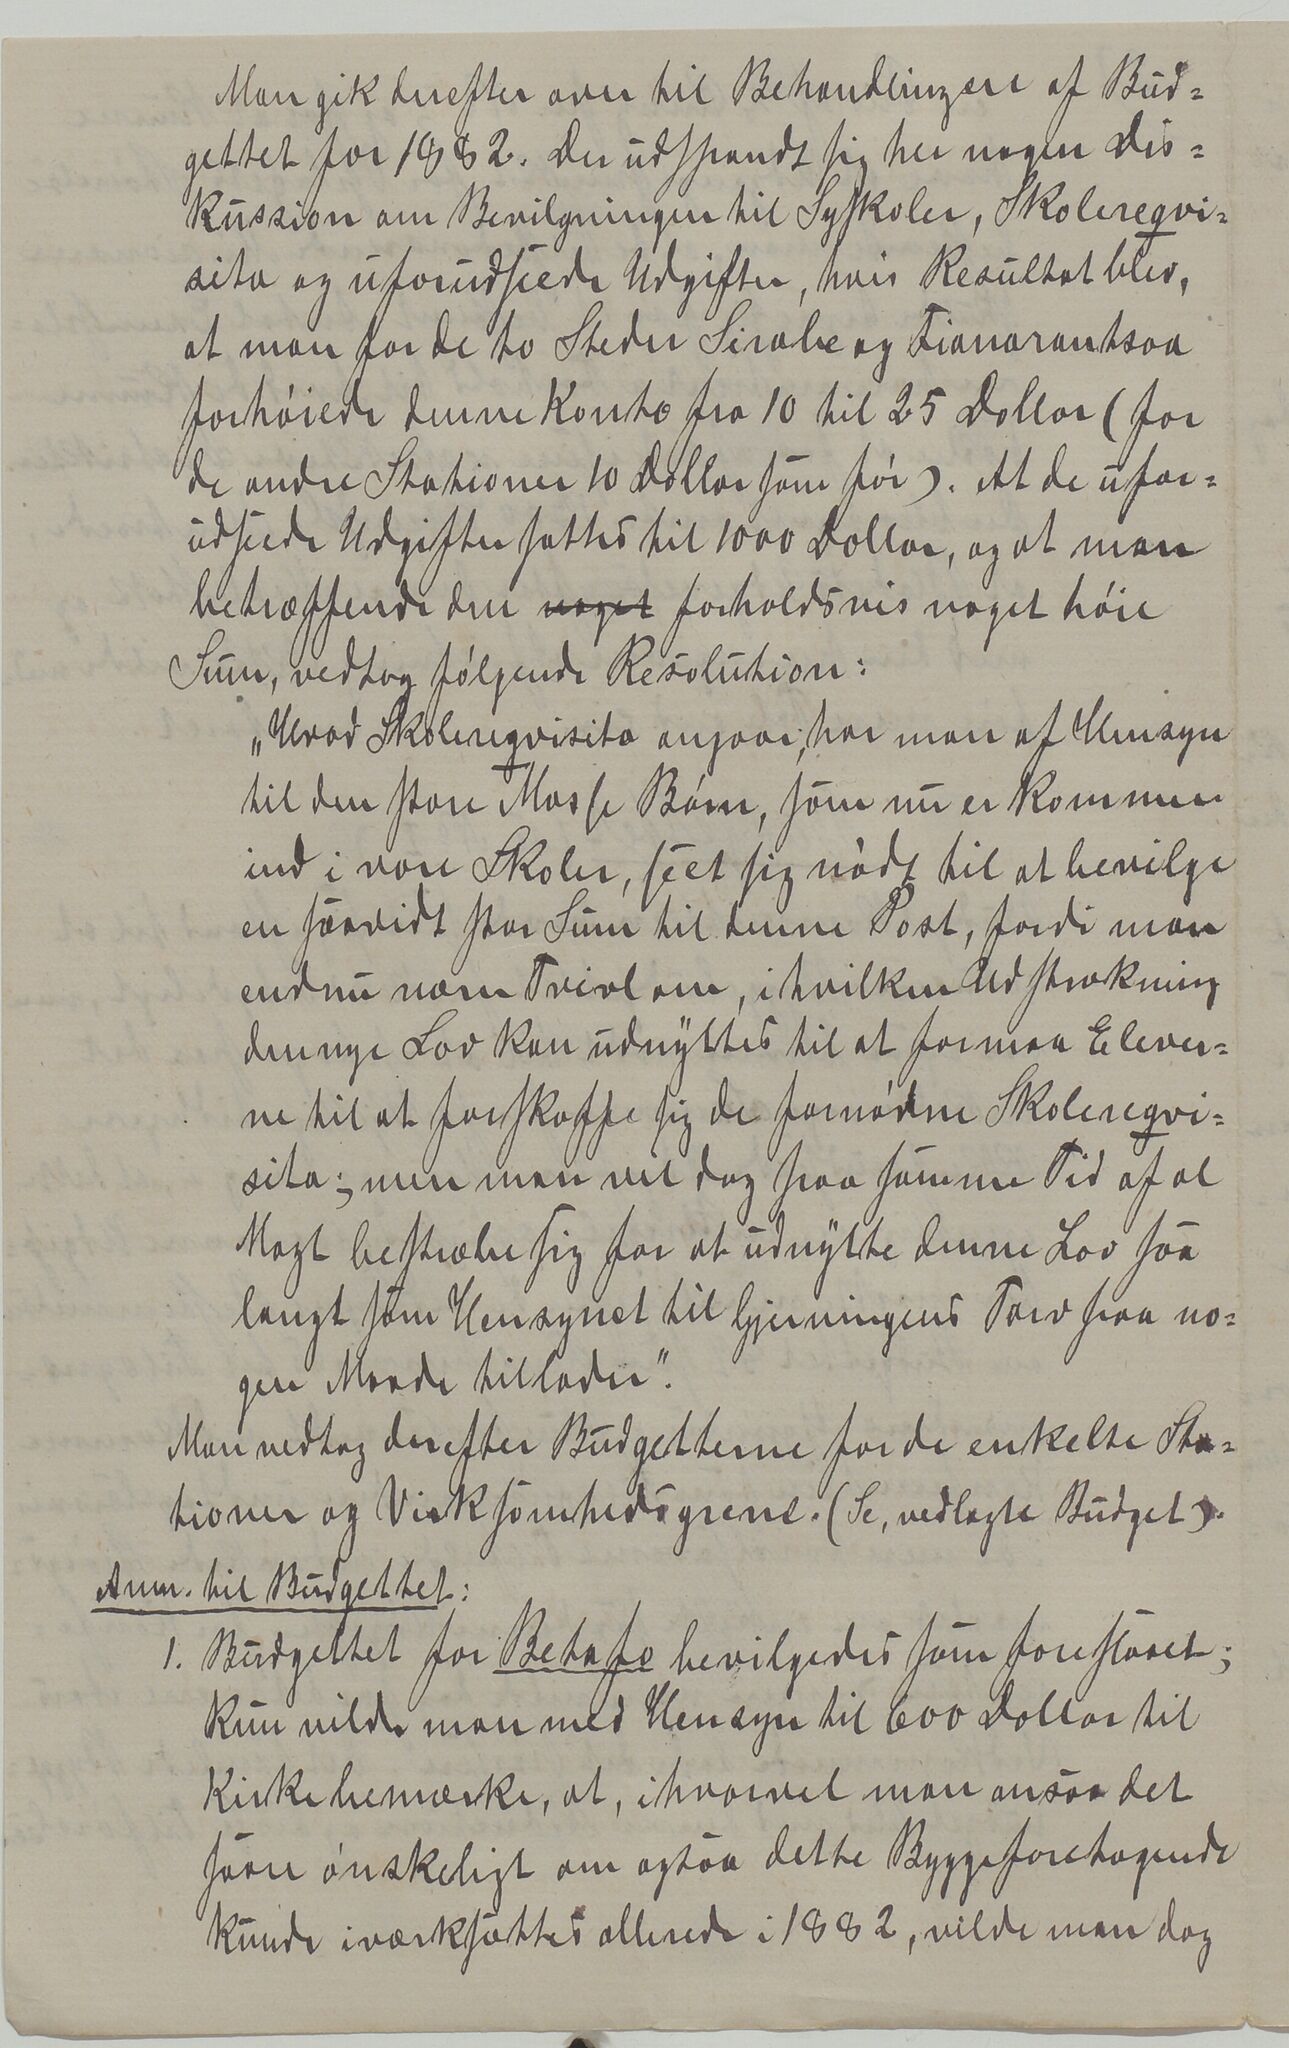 Man gik derefter over til Behandlingen af Bud-
gettet for 1882. Der udspandt sig her nogen Dis-
kussion om Bevilgningen til Syskoler, Skolereqvi-
sita og uforudseede Udgifter, hvis Resultat blev,
at man for de to Steder Sirabe og Fianarantsoa
forhøiede denne Konto fra 10 til 25 Dollar (for
de andre Stationer 10 Dollar som før). At de ufor-
udseede Udgifter sattes til 1000 Dollar, og at man
betræffende den noget forholdsvis noget høie
Sum, vedtog følgende Resolution:
„Hvad Skolereqvisita angaar, har man af Hensyn
til den store Masse Børn, som nu er kommen
ind i vore Skoler, seet sig nødt til at bevilge
en saavidt stor Sum til denne Post, fordi man
endnu var i Tvivl om, i hvilken Udstrækning
den nye Lov kan udnyttes til at formaa Elever-
ne til at forskaffe sig de fornødne Skolereqvi-
sita; men man vil dog paa samme Tid af al
Magt bestræbe sig for at udnytte denne Lov saa
langt som Hensynet til Gjerningens Tarv paa no-
gen Maade tillader".
Man vedtog derefter Budgetterne for de enkelte Sta-
tioner og Virksomhedsgrene. (Se, vedlagte Budget).
Anm. til Budgettet:
1. Budgettet for Betafo bevilgedes som foreslaaet;
kun vilde man med Hensyn til 600 Dollar til
Kirke bemærke, at, ihvorvel man ansaa det
saare ønskeligt om ogsaa dette Byggeforetagende
kunde iværksættes allerede i 1882, vilde man dog